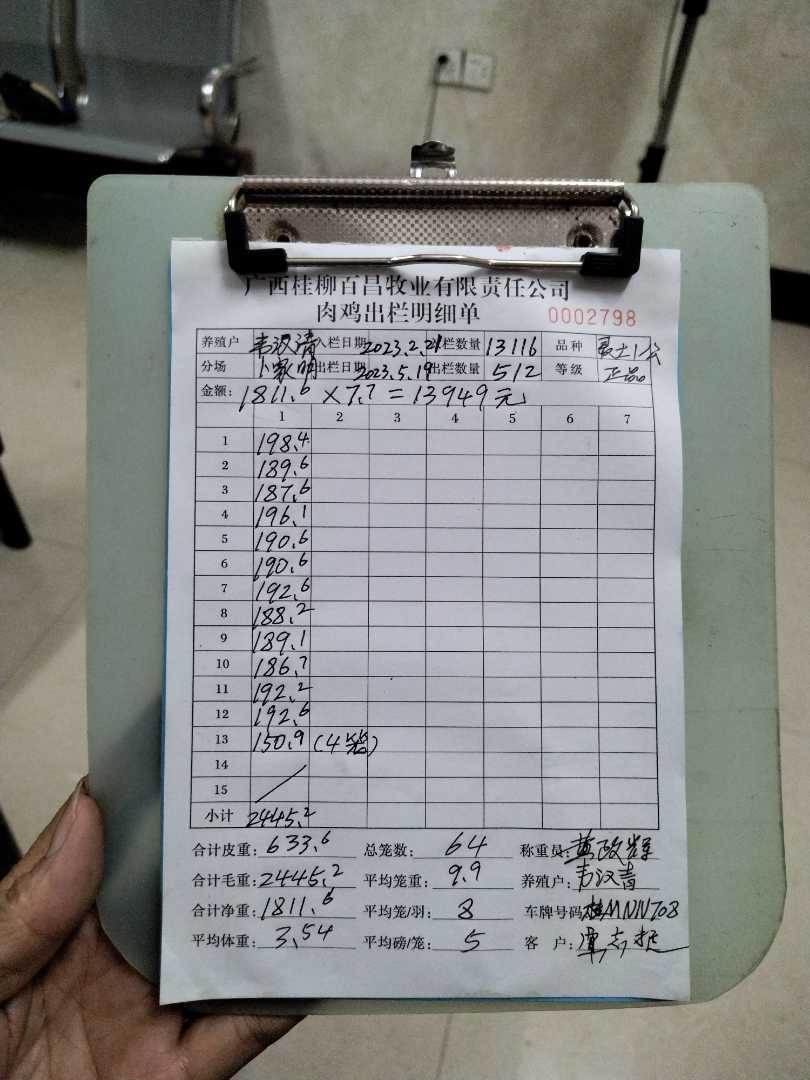 广西桂柳百昌牧业有限责任公司
肉鸡出栏明细单
0002798
养殖户 韦汉清 入栏日期 2023.2.21 入栏数量 13116 品种
分场 卜家明 出栏日期 2023.5.19 出栏数量 512 等级 正品
金额: 1811.6×7.7=13949元
1 2 3 4 5 6 7
1 198.4
2 189.6
3 187.6
4 196.1
5 190.6
6 190.6
7 192.6
8 188.2
9 189.1
10 186.7
11 192.2
12 192.6
13 150.9 (4笼)
14
15
小计 2445.2
合计皮重: 633.6 总笼数: 64 称重员:
合计毛重: 2445.2 平均笼重: 9.9 养殖户: 韦汉青
合计净重: 1811.6 平均笼/羽: 8 车牌号码 桂MNN708
平均体重: 3.54 平均磅/笼: 5 客户: 覃志